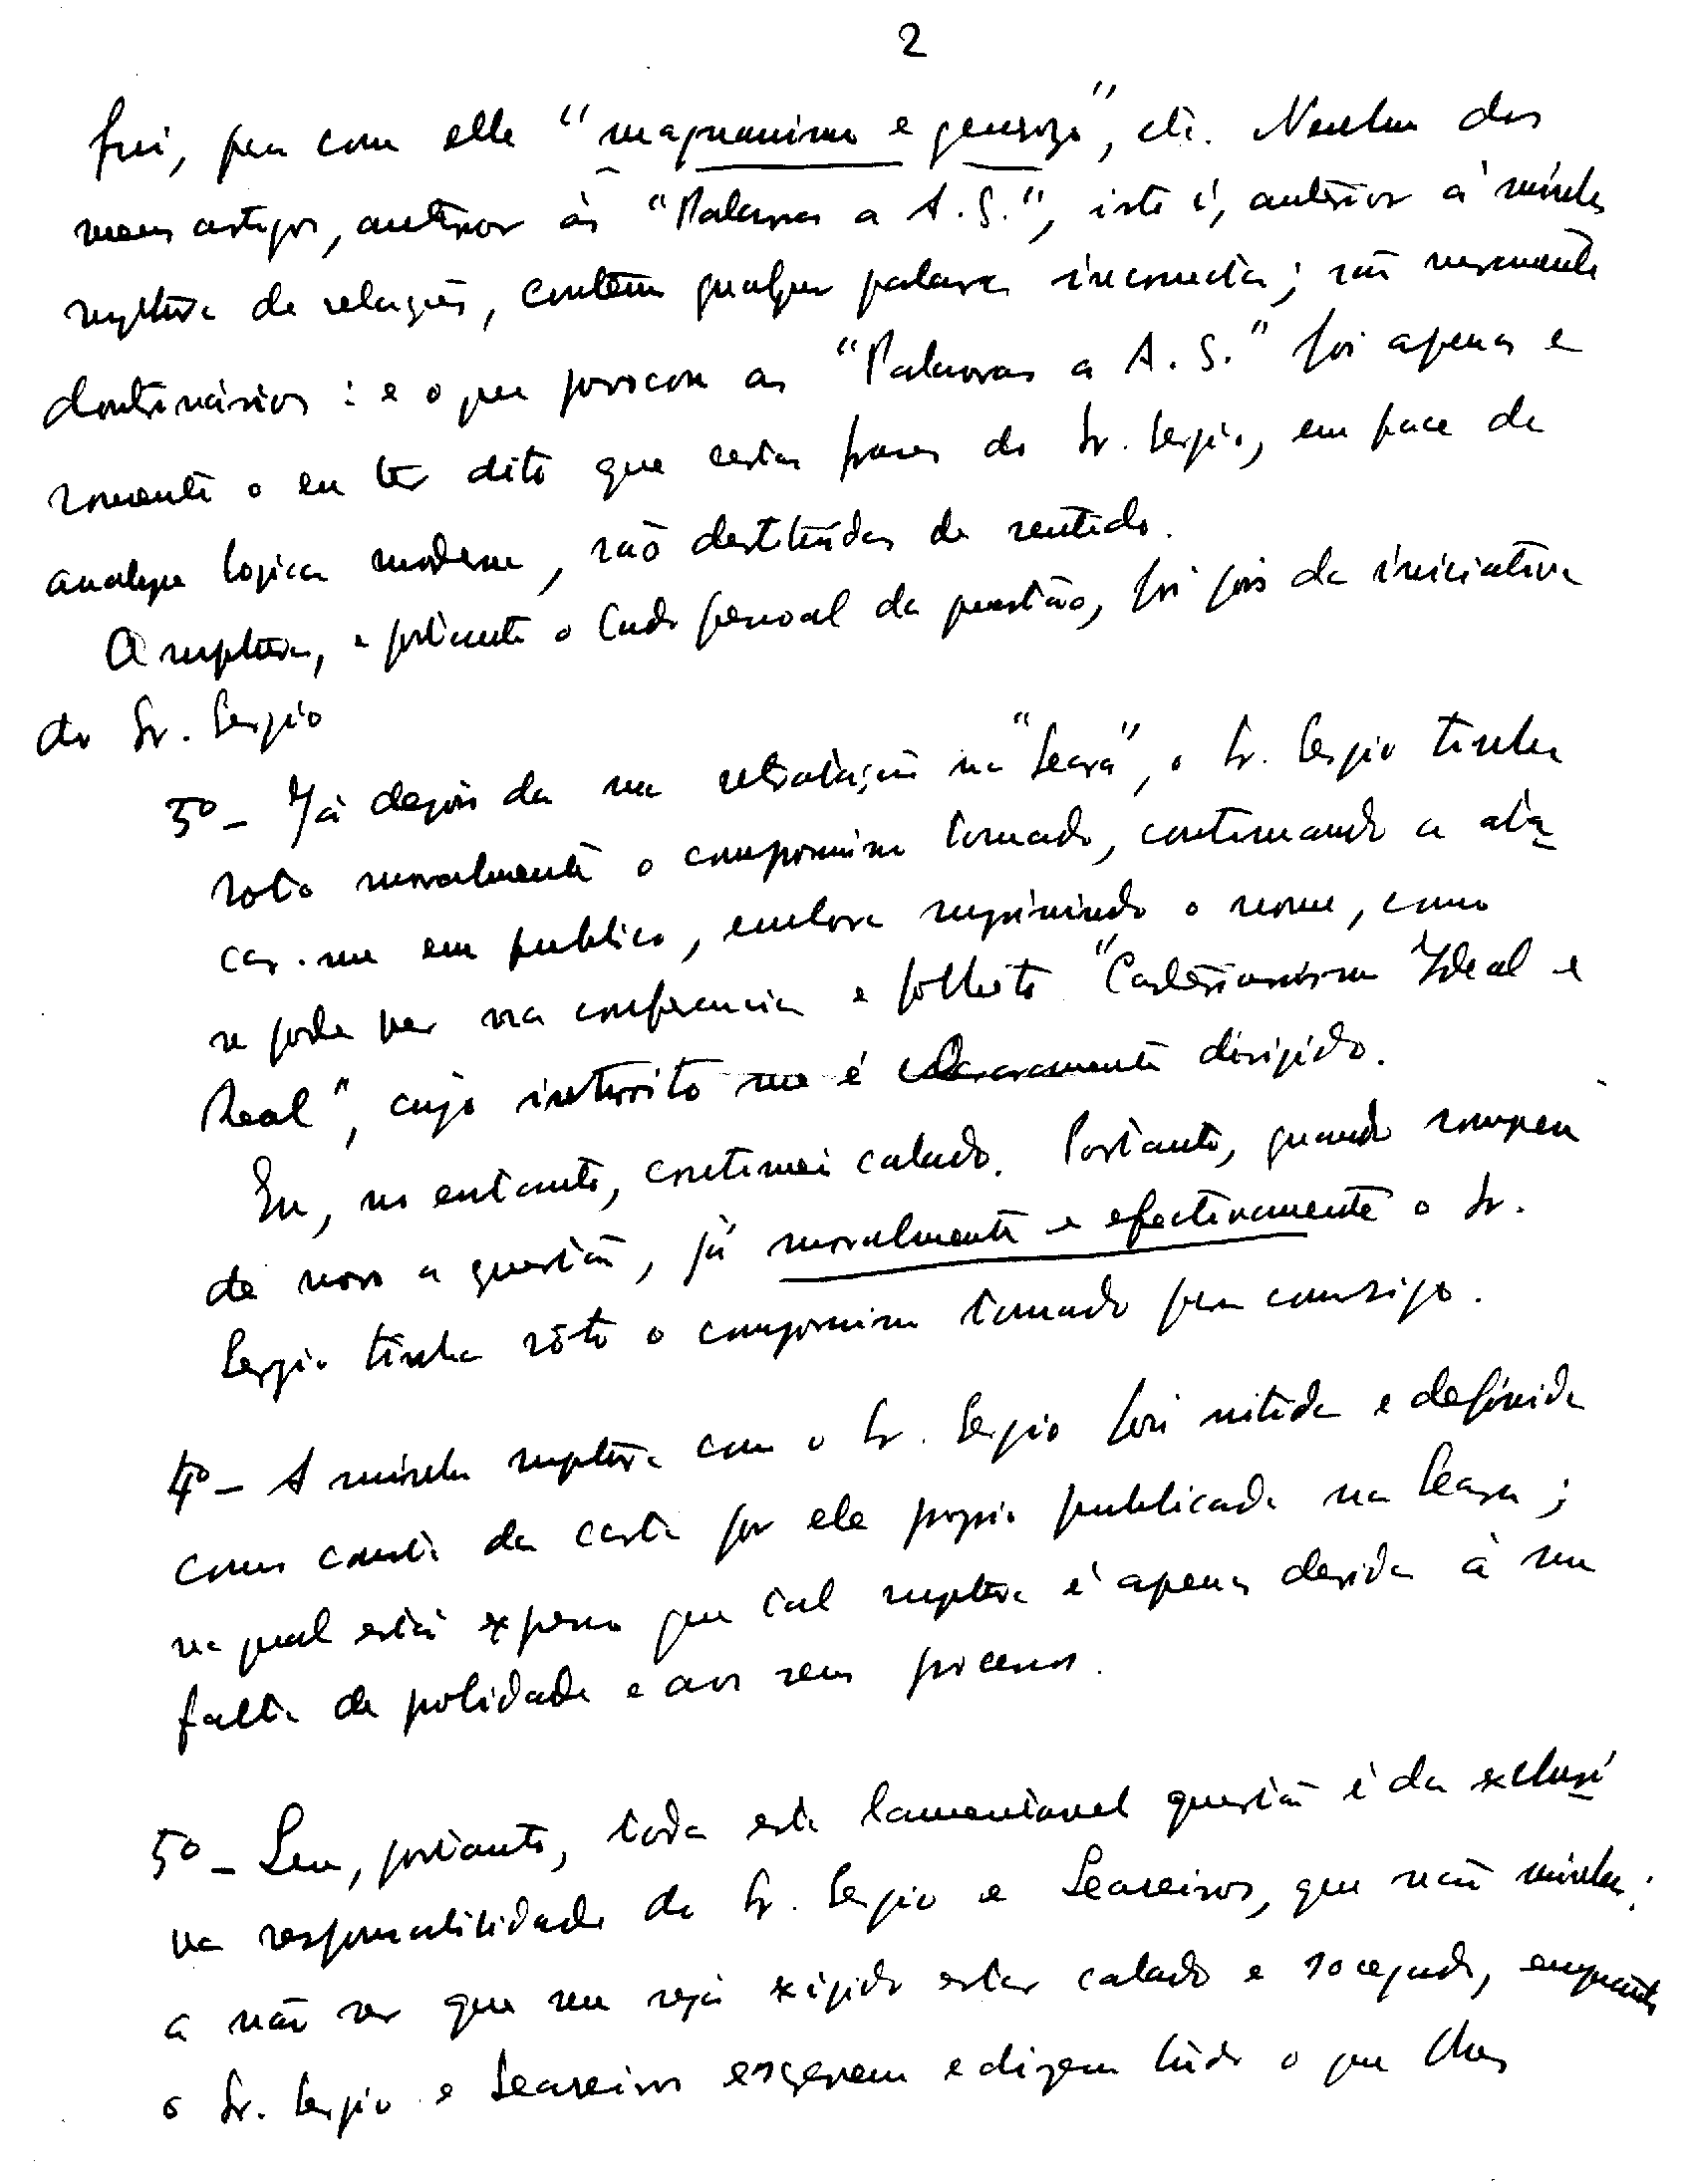 2
fui, para com elle "magnanimo e generoso", etc. Nenhum dos
meus artigos, anterior às "Palavras a A. S.", isto é, anterior à minha
ruptura de relações, contem qualquer palavra incorrecta; são meramente
doutrinários: e o que provocou as "Palavras a A. S." foi apenas e
somente o eu ter dito que certas frases do Sr. Sergio, em face da
analyse logica moderna, são destituidas de sentido.
A ruptura, e portanto o lado pessoal da questão, foi pois da iniciativa
do Sr. Sergio
3º - Já depois da sua retratação na "Seara", o Sr. Sergio tinha
roto moralmente o compromisso tomado, continuando a ata-
car-me em publico, embora suprimindo o nome, como
se pode ver na conferencia e folheto "Cartesianismo Ideal e
Real", cujo introito me é claramente dirigido.
Eu, no entanto, continuei calado. Portanto, quando rompeu
de novo a questão, já moralmente e efectivamente o Sr.
Sergio tinha rôto o compromisso tomado para comsigo.
4º - A minha ruptura com o Sr. Sergio foi nitida e definida
como consta da carta por ele proprio publicada na Seara;
na qual está expresso que tal ruptura é apenas devida à sua
falta de polidade e aos seus processos.
5º - Sou, portanto, toda esta lamentavel questão é da exclusi-
va responsabilidade do Sr. Sergio e Seareiros, que não minha;
a não ser que me seja exigido estar calado e socegado, emquanto
o Sr. Sergio e Seareiros escrevem e dizem tudo o que lhes